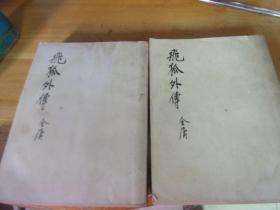 飛狐外傳
金庸
飛狐外傳
金庸